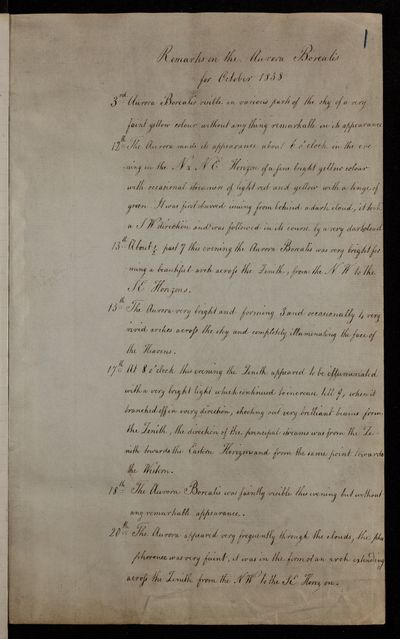 1
Remarks on the Aurora Borealis
for October 1838
3rd Aurora Borealis visible in various parts of the sky of a very
faint yellow colour without any thing remarkable in its appearance
12th The Aurora made its appearance about 6 o'clock in the eve
ning in the N & NE Horizon of a fine bright yellow colour
with occasional streams of light red and yellow with a tinge of
green. It was first observed issuing from behind a dark cloud, it took
a SW direction and was followed in its course by a very dark cloud
13th About ½ past 7 this evening the Aurora Borealis was very bright for
ming a beautiful arch across the Zenith, from the NW to the
SE Horizons.
15th The Aurora very bright and forming 3 and occasionally 4 very
vivid arches across the sky and completely illuminating the face of
the Heavens.
17th At 8 o'clock this evening the Zenith appeared to be illuminated
with a very bright light which continued to increase till 9, when it
branched off in every direction, shooting out very brilliant beams from
the Zenith, the direction of the principal streams was from the Ze
nith towards the Eastern Horizon and from the same point towards
the Western.
18th The Aurora Borealis was faintly visible this evening but without
any remarkable appearance.
20th The Aurora appeared very frequently through the clouds, the phos
phorence was very faint, it was in the form of an arch extending
across the Zenith from the NW to the SE Horizon.